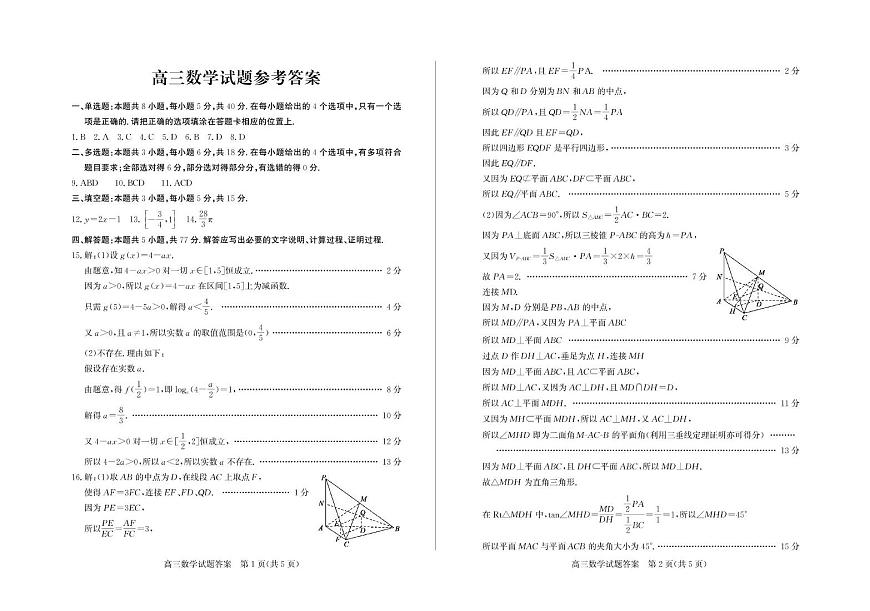 高三数学试题参考答案
一、单选题:本题共 8 小题,每小题 5 分,共 40 分.在每小题给出的 4 个选项中,只有一个选
项是正确的.请把正确的选项填涂在答题卡相应的位置上.
1.B 2.A 3.C 4.C 5.D 6.B 7.D 8.D
二、多选题:本题共 3 小题,每小题 6 分,共 18 分.在每小题给出的 4 个选项中,有多项符合
题目要求;全部选对得 6 分,部分选对得部分分,有选错的得 0 分.
9.ABD 10.BCD 11.ACD
三、填空题:本题共 3 小题,每小题 5 分,共 15 分.
12.y=2x-1 13.[-3/4,1] 14.28/3π
四、解答题:本题共 5 小题,共 77 分.解答应写出必要的文字说明、计算过程、证明过程.
15.解:(1)设 g(x)=4-ax.
由题意,知 4-ax>0 对一切 x∈[1,5]恒成立. …… 2 分
因为 a>0,所以 g(x)=4-ax 在区间[1,5]上为减函数.
只需 g(5)=4-5a>0,解得 a<4/5. …… 4 分
又 a>0,且 a≠1,所以实数 a 的取值范围是(0,4/5) …… 6 分
(2)不存在.理由如下:
假设存在实数 a.
由题意,得 f(1/2)=1,即 logₐ(4-a/2)=1, …… 8 分
解得 a=8/3. …… 10 分
又 4-ax>0 对一切 x∈[1/2,2]恒成立, …… 12 分
所以 4-2a>0,所以 a<2,所以实数 a 不存在. …… 13 分
16.解:(1)取 AB 的中点为 D,在线段 AC 上取点 F,
使得 AF=3FC,连接 EF、FD、QD. …… 1 分
因为 PE=3EC,
所以PE/EC=AF/FC=3,
P
M
N
Q
E
A
D
B
F
C
高三数学试题答案 第 1 页(共 5 页)
所以 EF∥PA,且 EF=1/4PA. …… 2 分
因为 Q 和 D 分别为 BN 和 AB 的中点,
所以 QD∥PA,且 QD=1/2NA=1/4PA
因此 EF∥QD 且 EF=QD,
所以四边形 EQDF 是平行四边形, …… 3 分
因此 EQ∥DF.
又因为 EQ⊄平面 ABC,DF⊂平面 ABC,
所以 EQ∥平面 ABC. …… 5 分
(2)因为∠ACB=90°,所以 S△ABC=1/2AC·BC=2.
因为 PA⊥底面 ABC,所以三棱锥 P-ABC 的高为 h=PA,
又因为 V_P-ABC=1/3S△ABC·PA=1/3×2×h=4/3
故 PA=2. …… 7 分
连接 MD.
因为 M,D 分别是 PB,AB 的中点,
所以 MD∥PA,又因为 PA⊥平面 ABC
P
M
N
Q
E
A
D
B
H
C
所以 MD⊥平面 ABC …… 9 分
过点 D 作 DH⊥AC,垂足为点 H,连接 MH
因为 MD⊥平面 ABC,且 AC⊂平面 ABC,
所以 MD⊥AC,又因为 AC⊥DH,且 MD∩DH=D,
所以 AC⊥平面 MDH. …… 11 分
又因为 MH⊂平面 MDH,所以 AC⊥MH,又 AC⊥DH,
所以∠MHD 即为二面角 M-AC-B 的平面角(利用三垂线定理证明亦可得分) ……
…… 13 分
因为 MD⊥平面 ABC,且 DH⊂平面 ABC,所以 MD⊥DH.
故△MDH 为直角三角形.
在 Rt△MDH 中,tan∠MHD=MD/DH=(1/2PA)/(1/2BC)=1/1=1,所以∠MHD=45°
所以平面 MAC 与平面 ACB 的夹角大小为 45°. …… 15 分
高三数学试题答案 第 2 页(共 5 页)